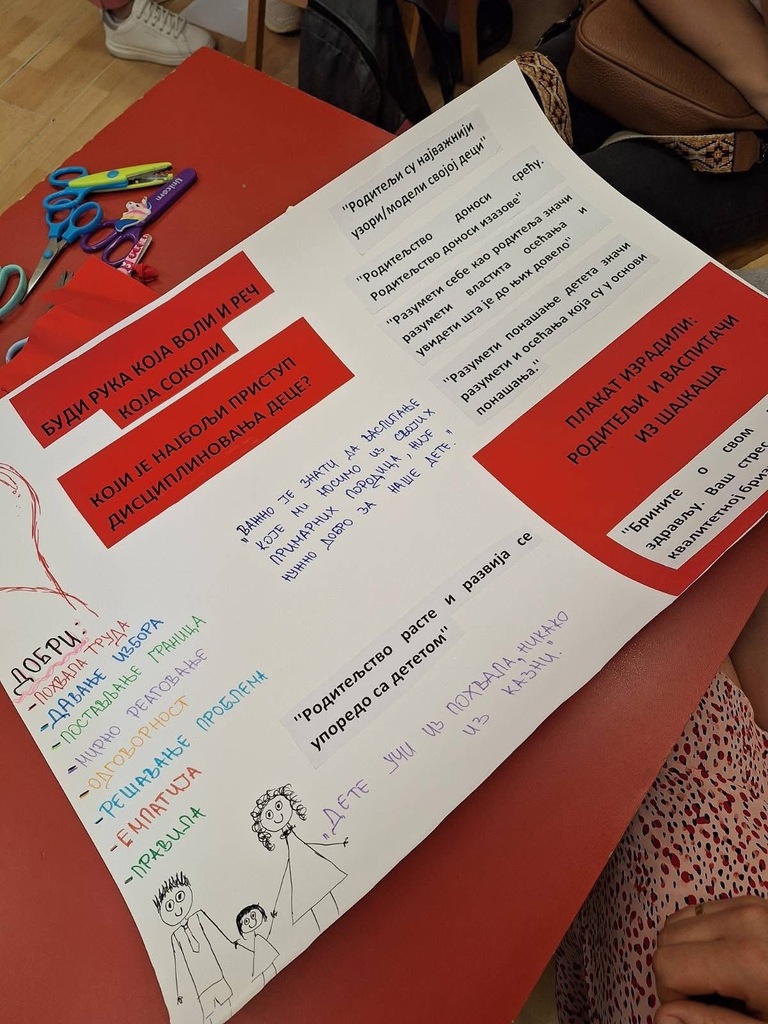 "Родитељи су најважнији
узори/модели својој деци"
"Родитељство доноси срећу.
Родитељство доноси изазове"
"Разумети себе као родитеља значи
разумети властита осећања и
увидети шта је до њих довело"
"Разумети понашање детета значи
разумети и осећања која су у основи
понашања."
БУДИ РУКА КОЈА ВОЛИ И РЕЧ
КОЈА СОКОЛИ
КОЈИ ЈЕ НАЈБОЉИ ПРИСТУП
ДИСЦИПЛИНОВАЊА ДЕЦЕ?
"ВАЖНО ЈЕ ЗНАТИ ДА ВАСПИТАЊЕ
КОЈЕ МИ НОСИМО ИЗ СВОЈИХ
ПРИМАРНИХ ПОРОДИЦА, НИЈЕ
НУЖНО ДОБРО ЗА НАШЕ ДЕТЕ."
ПЛАКАТ ИЗРАДИЛИ:
РОДИТЕЉИ И ВАСПИТАЧИ
ИЗ ШАЈКАША
"Брините о свом
здрављу. Ваш стрес
квалитетној
ДОБРИ:
-ПОХВАЛА ТРУДА
-ДАВАЊЕ ИЗБОРА
-ПОСТАВЉАЊЕ ГРАНИЦА
-МИРНО РЕАГОВАЊЕ
-ОДГОВОРНОСТ
-РЕШАВАЊЕ ПРОБЛЕМА
-ЕМПАТИЈА
-ПРАВИЛА
"Родитељство расте и развија се
упоредо са дететом"
"ДЕТЕ УЧИ ИЗ ПОХВАЛА, НИКАКО
ИЗ КАЗНИ."
Unicorn